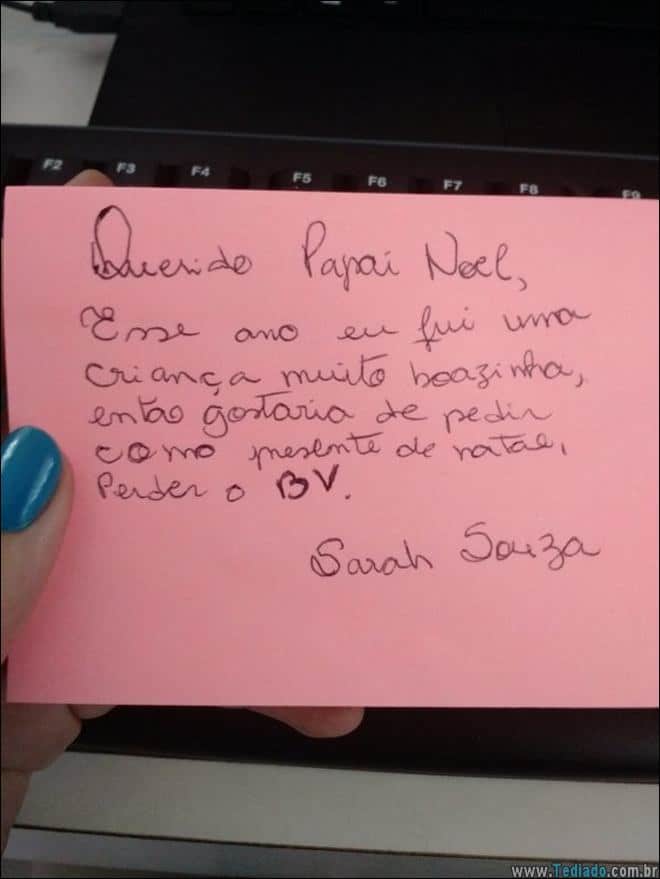 F2 F3 F4 F5 F6 F7 F8 F9
Querido Papai Noel,
Esse ano eu fui uma
criança muito boazinha,
então gostaria de pedir
como presente de natal,
Perder o BV.
Sarah Souza
www.Tediado.com.br